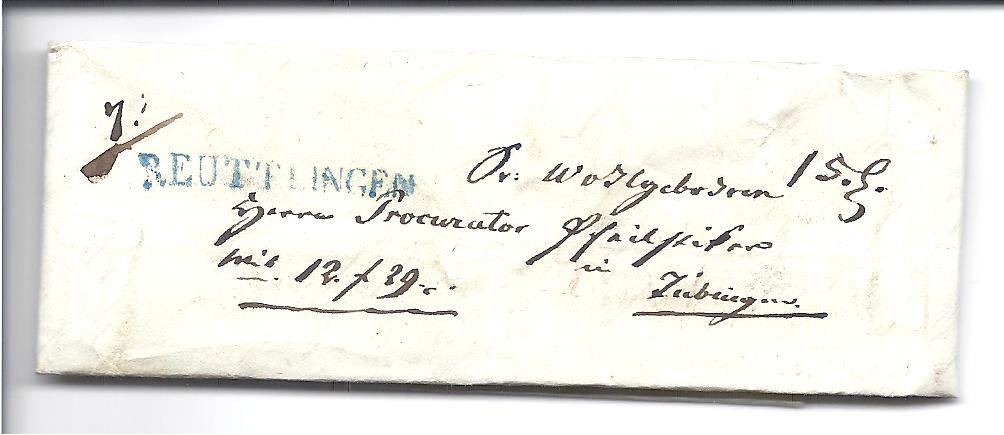 REUTTLINGEN
Sr: Wohlgebohren
Herrn Procurator Pfeilsticker
mit 12. f 29.
in Tübingen.